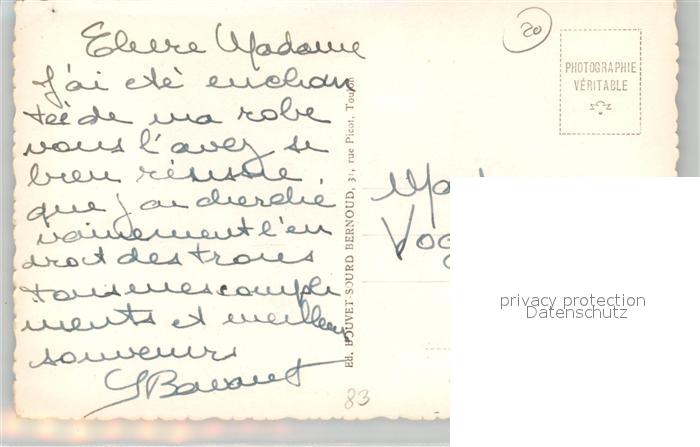 Chère Madame
J'ai été enchan
tée de ma robe
vous l'avez si
bien réussie
que j'ai cherché
vainement l'en
droit des trous
tous mes compli
ments et meilleurs
souvenirs
Ed. BOUVET SOURD BERNOUD, 31, rue Picot, Toulon
20
PHOTOGRAPHIE
VÉRITABLE
83
privacy protection
Datenschutz